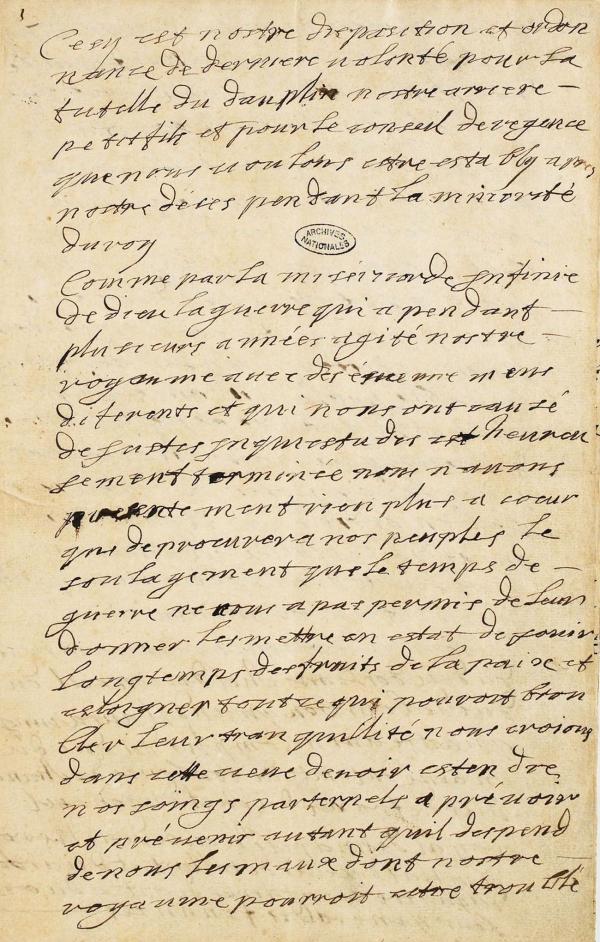 1
Cecy est nostre disposition et ordon
nance de derniere uolonté pour la
tutelle du dauphin nostre arriere
petit fils et pour le conseil de regence
que nous uoulons estre estably apres
nostre déces pendant la minorité
du roy
ARCHIVES
NATIONALES
Comme par la miséricorde Infinie
de dieu la guerre qui a pendant
plusieurs années agité nostre
royaume auec des éuenemens
diferents et qui nous ont causé
de Justes Inquiestudes est heureu
sement terminée nous n auons
presentement rien plus a coeur
que de procurer a nos peuples le
soulagement que le temps de
guerre ne nous a pas permis de leur
donner les mettre en estat de jouir
longtemps des fruits de la paix et
esloigner tout ce qui pouroit trou
bler leur tranquilité nous croions
dans cette ueue deuoir estendre
nos soings paternels a préuoir
et préuenir autant quil despend
de nous les maux dont nostre
royaume pourroit estre troublé